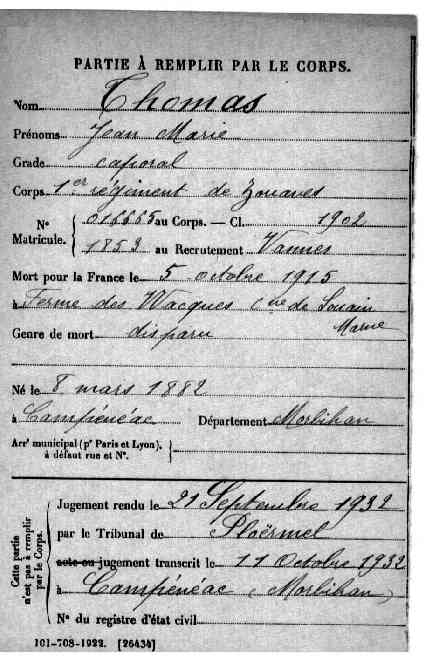 PARTIE À REMPLIR PAR LE CORPS.
Nom Thomas
Prénoms Jean Marie
Grade caporal
Corps 1er régiment de Zouaves
N° Matricule. { 016665 au Corps. — Cl. 1902
1853 au Recrutement Vannes
Mort pour la France le 5 octobre 1915
à Ferme des Wacques Cne de Souain
Marne
Genre de mort disparu
Né le 8 mars 1882
à Campénéac Département Morbihan
Arrt municipal (pr Paris et Lyon), à défaut rue et N°. }
Cette partie n'est pas à remplir par le Corps.
Jugement rendu le 21 Septembre 1932
par le Tribunal de Ploërmel
acte ou jugement transcrit le 11 Octobre 1932
à Campénéac (Morbihan)
N° du registre d'état civil
101-708-1922. [26434]